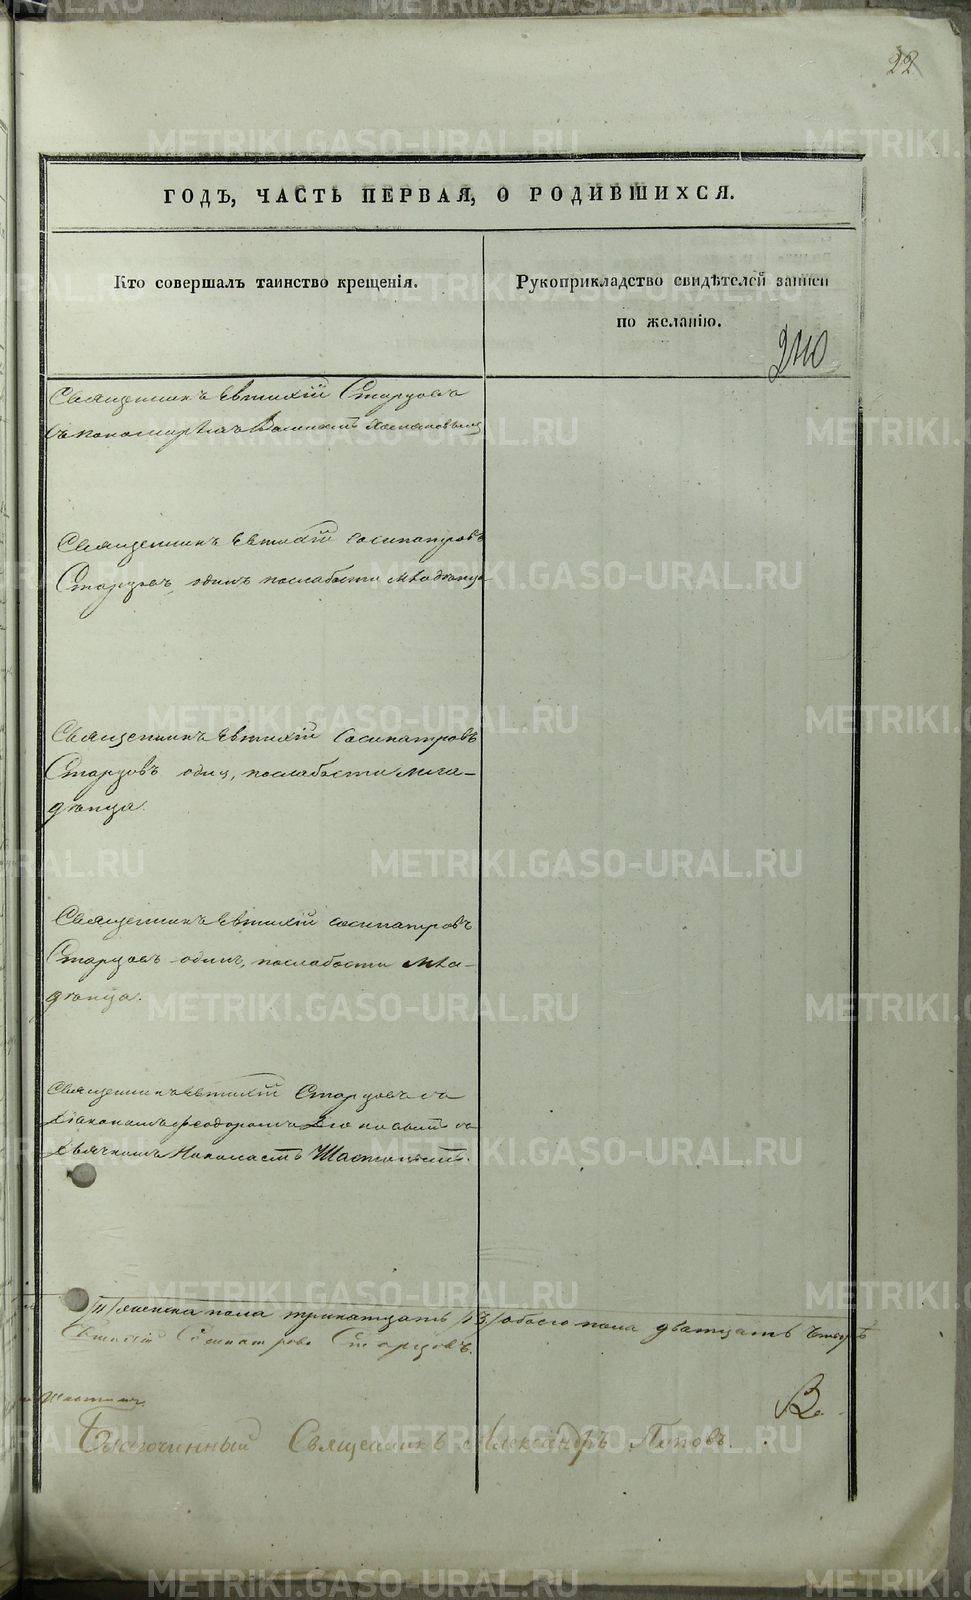 22
ГОДЪ, ЧАСТЬ ПЕРВАЯ, О РОДИВШИХСЯ.
Кто совершалъ таинство крещенія.
Рукоприкладство свидѣтелей записи
по желанію.
210
Священникъ Евтихій Старцовъ
съ пономаремъ
Священникъ Евтихій Сосипатровъ
Старцовъ, одинъ, послабости младенца
Священникъ Евтихій Сосипатровъ
Старцовъ одинъ, послабости мла-
денца.
Священникъ Евтихій Сосипатровъ
Старцовъ одинъ, послабости мла-
денца.
Священникъ Евтихій Старцовъ съ
Діакономъ Феодоромъ съ
Дьячкомъ
/11/ женска пола тринатцать /13/ обоего пола дватцать четыре
Евтихій Сосипатровъ Старцовъ.
Благочинный Священникъ Александръ Поповъ.
METRIKI.GASO-URAL.RU